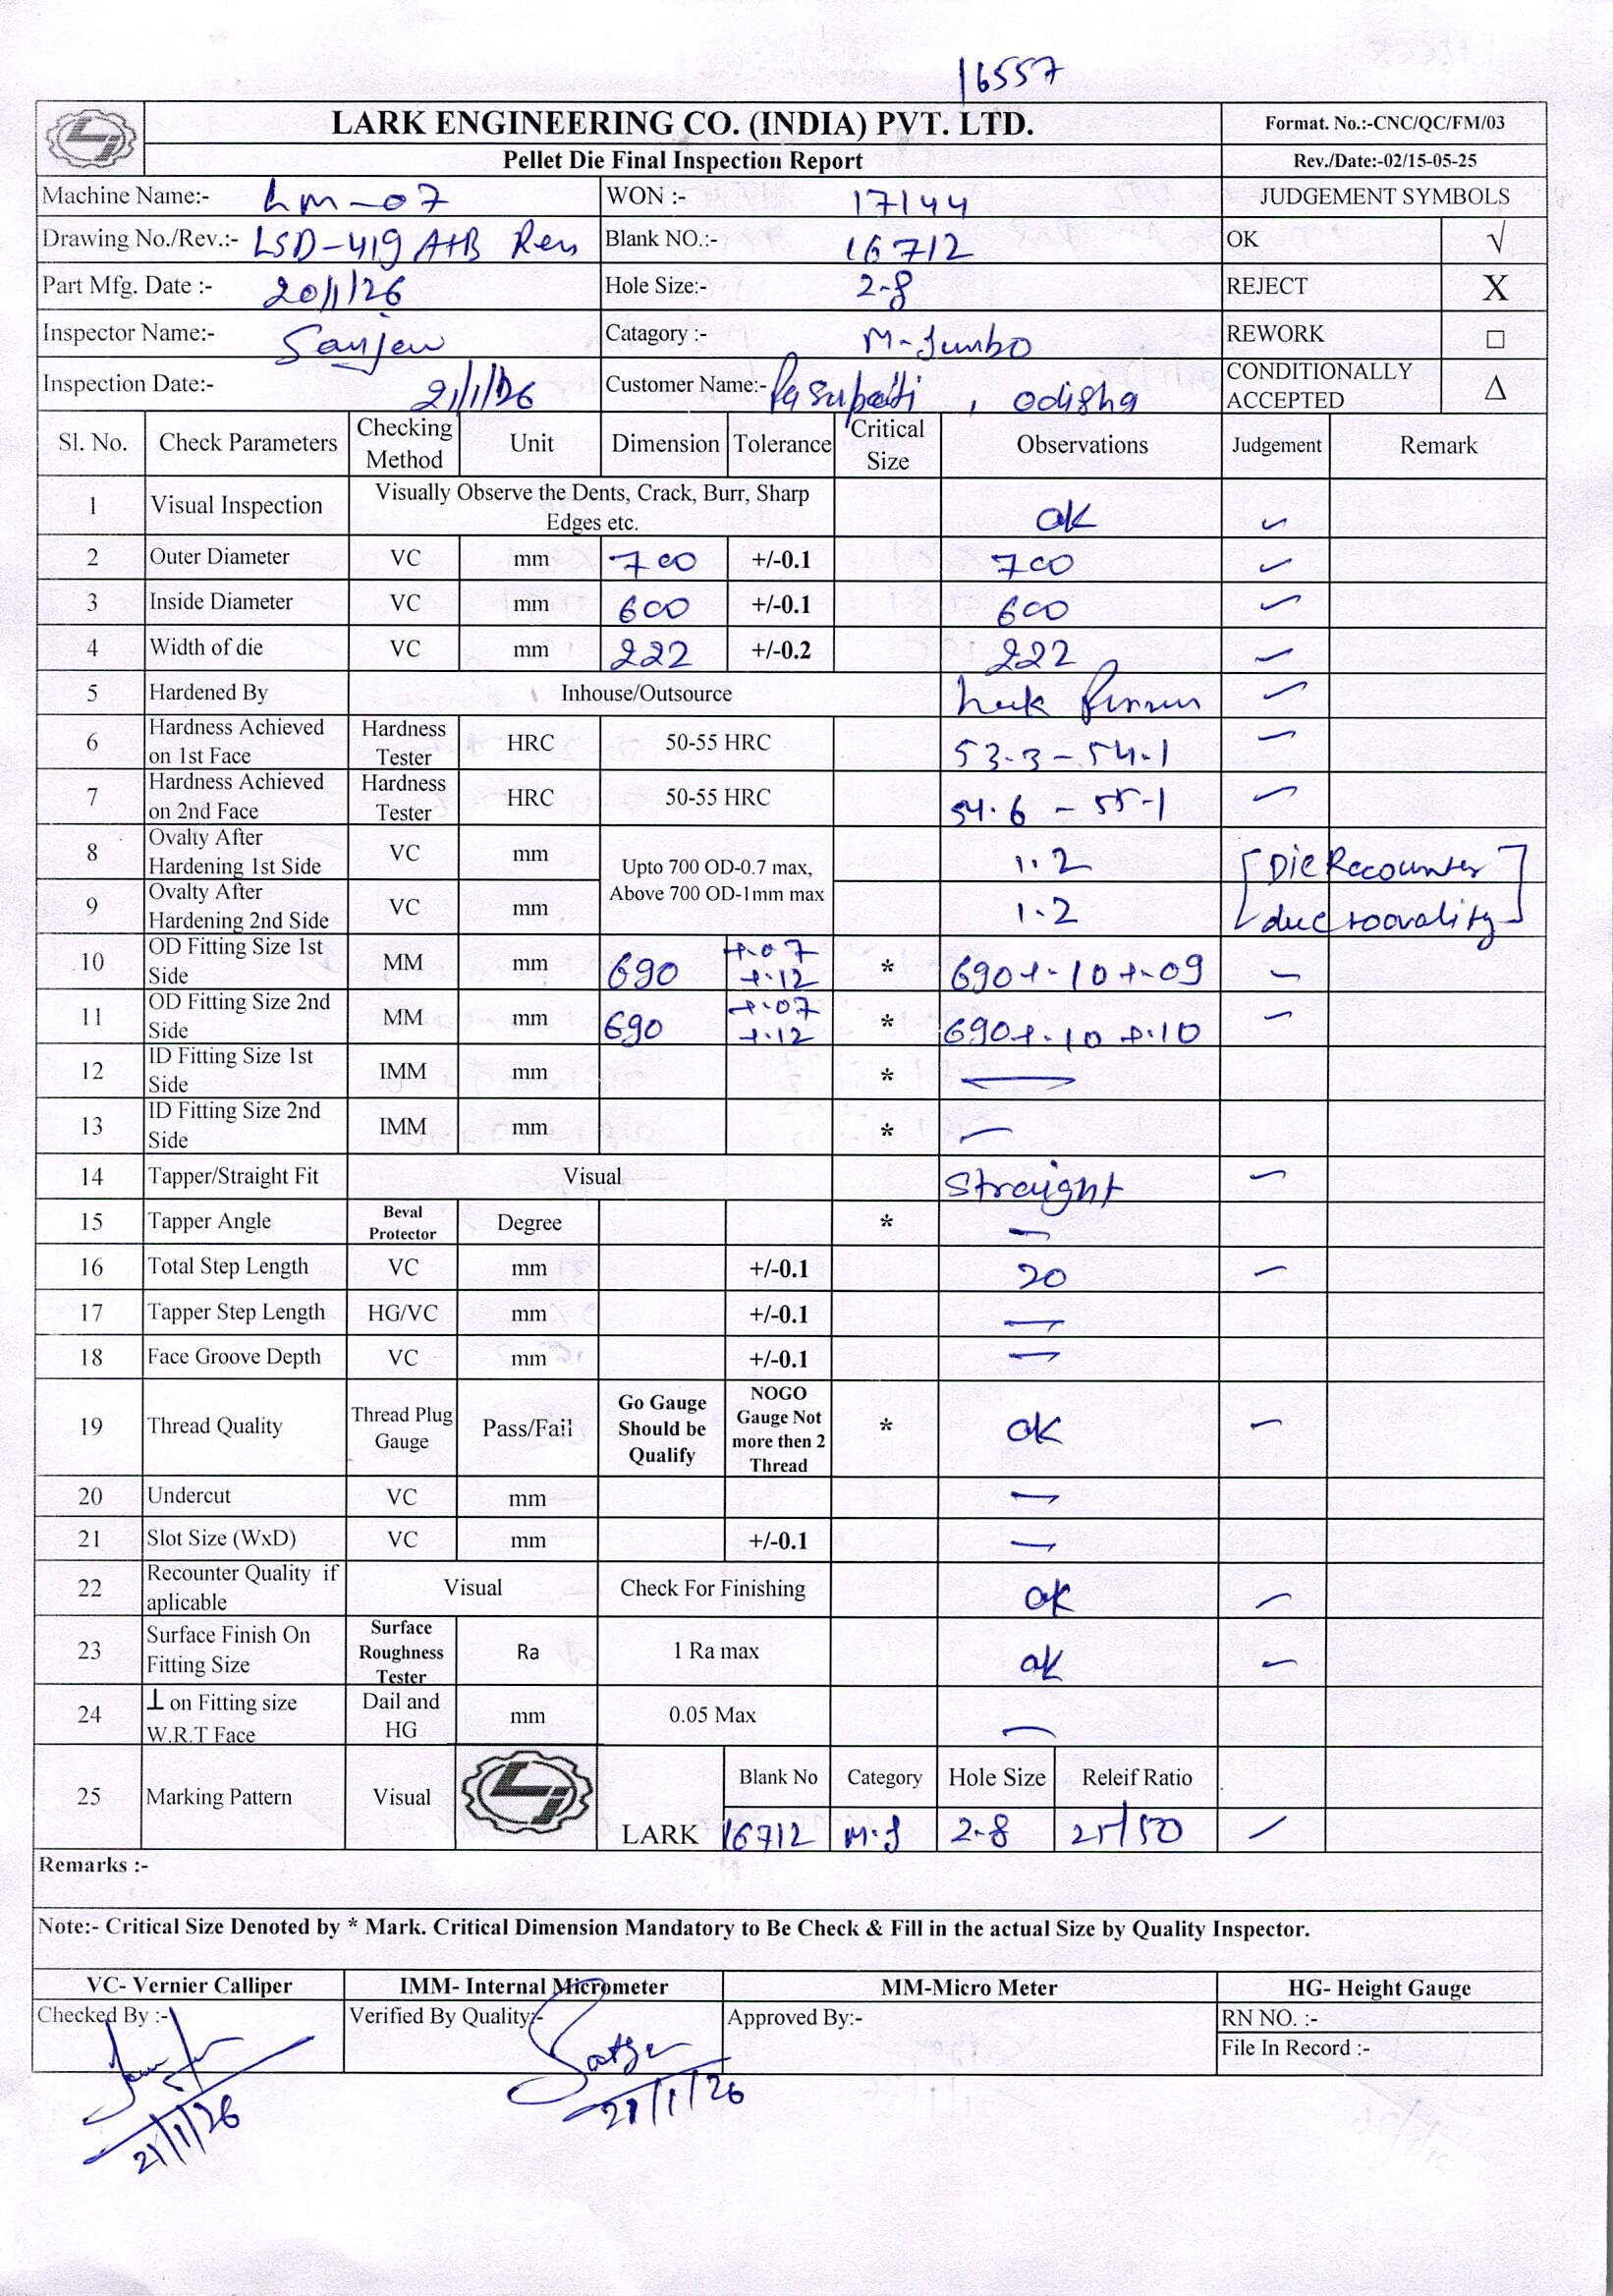 16557
LARK ENGINEERING CO. (INDIA) PVT. LTD. Format. No.:-CNC/QC/FM/03
Pellet Die Final Inspection Report Rev./Date:-02/15-05-25
Machine Name:- Lm-07 WON :- 17144 JUDGEMENT SYMBOLS
Drawing No./Rev.:- LSD-419 A+B Rev Blank NO.:- 16712 OK √
Part Mfg. Date :- 20/1/26 Hole Size:- 2-8 REJECT X
Inspector Name:- Sanjeev Catagory :- M-Jumbo REWORK □
Inspection Date:- 21/1/26 Customer Name:- Pasupati, odisha CONDITIONALLY ACCEPTED Δ
Sl. No. Check Parameters Checking Method Unit Dimension Tolerance Critical Size Observations Judgement Remark
1 Visual Inspection Visually Observe the Dents, Crack, Burr, Sharp Edges etc. ok ✓
2 Outer Diameter VC mm 700 +/-0.1 700 ✓
3 Inside Diameter VC mm 600 +/-0.1 600 ✓
4 Width of die VC mm 222 +/-0.2 222 ✓
5 Hardened By Inhouse/Outsource ✓
6 Hardness Achieved on 1st Face Hardness Tester HRC 50-55 HRC 53.3-54.1 ✓
7 Hardness Achieved on 2nd Face Hardness Tester HRC 50-55 HRC 54.6 - 55-1 ✓
8 Ovalty After Hardening 1st Side VC mm Upto 700 OD-0.7 max, Above 700 OD-1mm max 1.2 [Die Recounter
9 Ovalty After Hardening 2nd Side VC mm 1.2 due to ovality]
10 OD Fitting Size 1st Side MM mm 690 +.07 +.12 * 690+.10+.09 ✓
11 OD Fitting Size 2nd Side MM mm 690 +.07 +.12 * 690+.10 +.10 ✓
12 ID Fitting Size 1st Side IMM mm * —
13 ID Fitting Size 2nd Side IMM mm * —
14 Tapper/Straight Fit Visual Straight ✓
15 Tapper Angle Beval Protector Degree * —
16 Total Step Length VC mm +/-0.1 20 ✓
17 Tapper Step Length HG/VC mm +/-0.1 —
18 Face Groove Depth VC mm +/-0.1 —
19 Thread Quality Thread Plug Gauge Pass/Fail Go Gauge Should be Qualify NOGO Gauge Not more then 2 Thread * ok ✓
20 Undercut VC mm —
21 Slot Size (WxD) VC mm +/-0.1 —
22 Recounter Quality if aplicable Visual Check For Finishing ok ✓
23 Surface Finish On Fitting Size Surface Roughness Tester Ra 1 Ra max ok ✓
24 ⊥ on Fitting size W.R.T Face Dail and HG mm 0.05 Max —
25 Marking Pattern Visual LARK Blank No Category Hole Size Releif Ratio
16712 M.J 2-8 25/50 ✓
Remarks :-
Note:- Critical Size Denoted by * Mark. Critical Dimension Mandatory to Be Check & Fill in the actual Size by Quality Inspector.
VC- Vernier Calliper IMM- Internal Micrometer MM-Micro Meter HG- Height Gauge
Checked By :- Verified By Quality:- Approved By:- RN NO. :-
File In Record :-
21/1/26 21/1/26